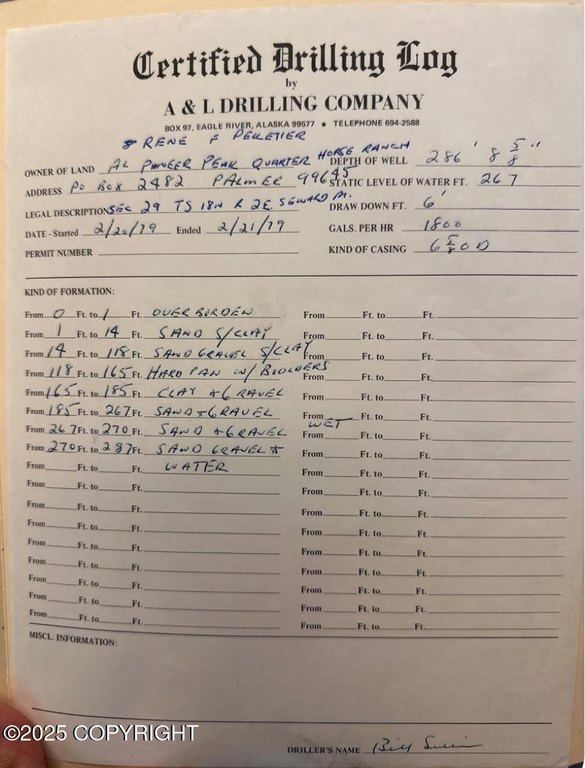 Certified Drilling Log
by
A & L DRILLING COMPANY
BOX 97, EAGLE RIVER, ALASKA 99577 • TELEPHONE 694-2588
& RENE F PELLETIER
OWNER OF LAND AL PIONEER PEAK QUARTER HORSE RANCH DEPTH OF WELL 286' 8 5/8"
ADDRESS PO BOX 2482 PALMER 99645 STATIC LEVEL OF WATER FT. 267
LEGAL DESCRIPTION SEC 29 T5 18N R 2E. SEWARD M. DRAW DOWN FT. 6'
DATE - Started 2/20/79 Ended 2/21/79 GALS. PER HR 1800
PERMIT NUMBER KIND OF CASING 6 5/8 OD
KIND OF FORMATION:
From 0 Ft. to 1 Ft. OVERBURDEN From Ft. to Ft.
From 1 Ft. to 14 Ft. SAND S/CLAY From Ft. to Ft.
From 14 Ft. to 118 Ft. SAND GRAVEL S/CLAY From Ft. to Ft.
From 118 Ft. to 165 Ft. HARD PAN W/ BOULDERS From Ft. to Ft.
From 165 Ft. to 185 Ft. CLAY & GRAVEL From Ft. to Ft.
From 185 Ft. to 267 Ft. SAND & GRAVEL From Ft. to Ft.
From 267 Ft. to 270 Ft. SAND & GRAVEL WET From Ft. to Ft.
From 270 Ft. to 287 Ft. SAND GRAVEL & From Ft. to Ft.
From Ft. to Ft. WATER From Ft. to Ft.
From Ft. to Ft. From Ft. to Ft.
From Ft. to Ft. From Ft. to Ft.
From Ft. to Ft. From Ft. to Ft.
From Ft. to Ft. From Ft. to Ft.
From Ft. to Ft. From Ft. to Ft.
From Ft. to Ft. From Ft. to Ft.
From Ft. to Ft. From Ft. to Ft.
From Ft. to Ft. From Ft. to Ft.
MISCL. INFORMATION:
©2025 COPYRIGHT
DRILLER'S NAME Bill